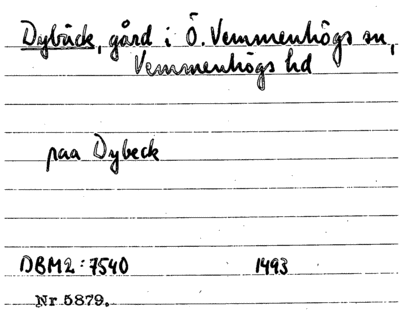 Dybäck, gård i Ö. Vemmenhögs sn,
Vemmenhögs hd
paa Dybeck
DBM2:7540 1493
Nr 5879.